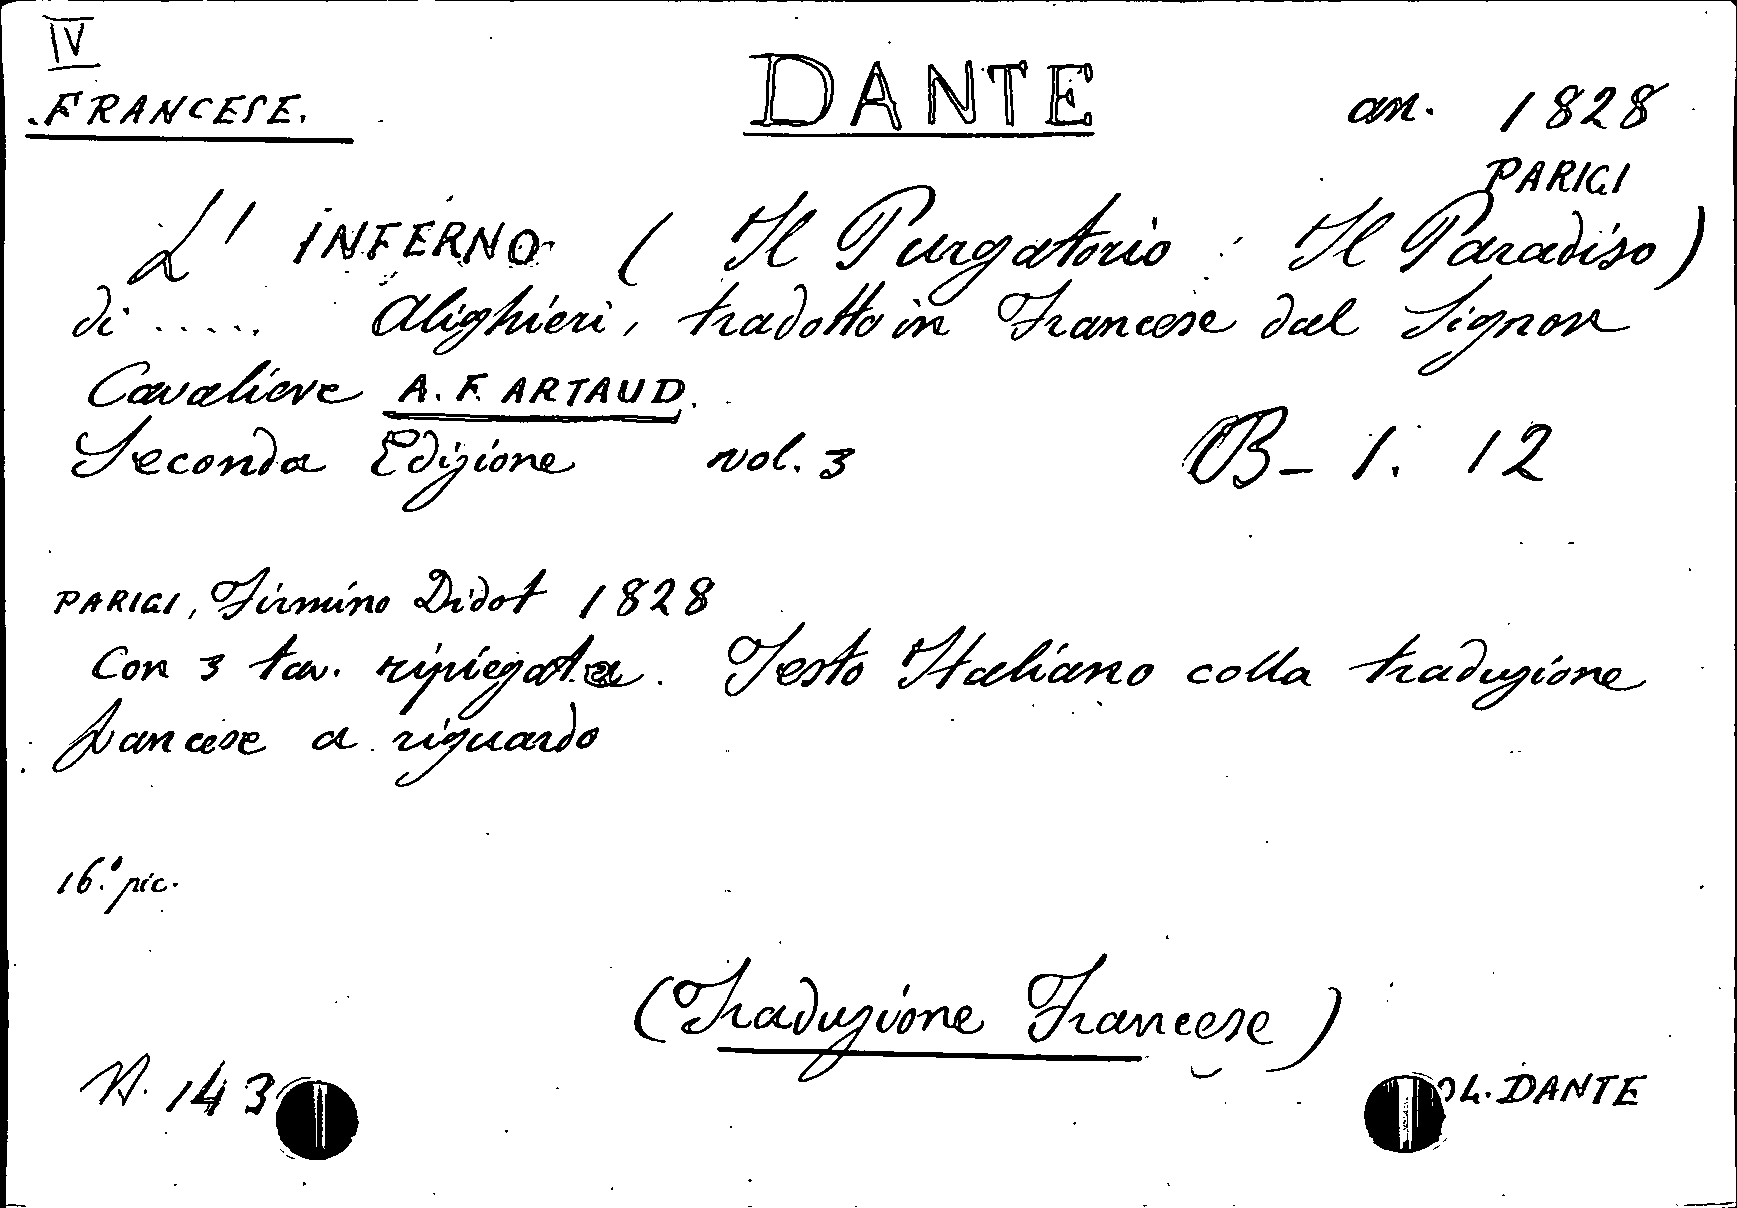 IV
.FRANCESE. DANTE an. 1828
PARIGI
L' INFERNO ( Il Purgatorio : Il Paradiso )
di ..... Alighieri, tradotto in Francese dal Signor
Cavaliere A. F. ARTAUD.
Seconda Edizione vol. 3 B- 1. 12
PARIGI, Firmino Didot 1828
Con 3 tav. ripiegate. Testo Italiano colla traduzione
francese a riguardo
16.° pic.
(Traduzione Francese)
N. 143 DANTE